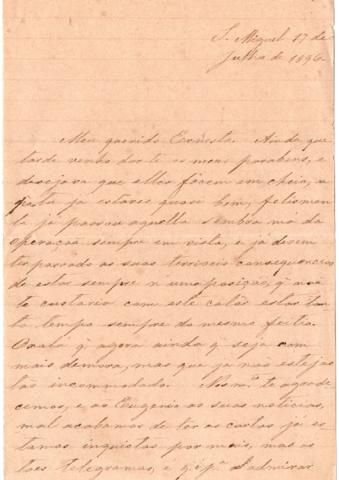 S. Miguel 17 de
Julho de 1896.
Meu querido Ernesto. Ainda que
tarde venho dar-te os meus parabens, e
desejava que elles fôcem em cheio, e
já estares quasi bem, felismen
te já passou aquella sombra má da
operação sempre em vista, e já devem
ter passado as suas terriveis consequencias
de estar sempre n'uma posição, q̃
te custaria com este calôr estar tan
to tempo sempre do mesmo feitio.
Oxalá q̃ agora ainda q̃ seja com
mais demora, mas que já não estejas
tão incommodado. te agrade
cemos, e ao Eugenio as suas noticias,
mal acabamos de lêr as cartas já es
tamos inquietos por mais, mas os
taes telegramas, e admirar